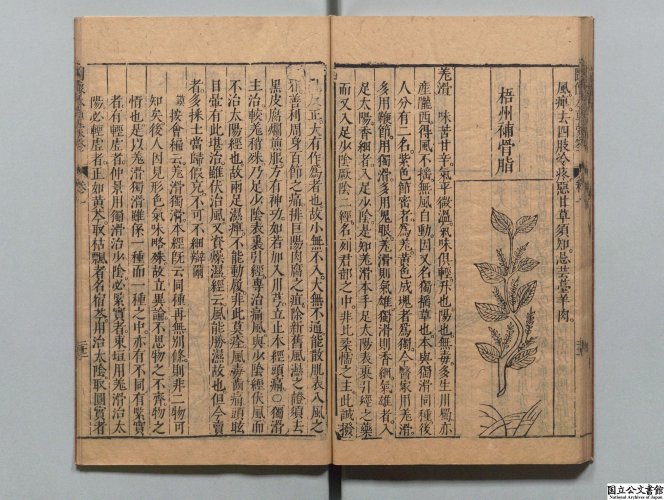 風痺去四肢冷疼惡甘草須知忌芸薹羊肉
梧州補骨脂
羌滑 味苦甘辛氣平微溫氣味俱輕升也陽也無毒多生川蜀亦
產隴西得風不搖無風自動因又名獨搖草也本與獨滑同種後
人分有二名紫色節密者為羌黃色成塊者為獨今醫家用羌滑
多用鞭節用獨滑多用鬼眼羌滑則氣雄獨滑則香細氣雄者入
足太陽香細者入足少陰是知羌滑本手足太陽表裏引經之藥
而又入足少陰厥陰二經名列君部之中非比柔懦之主此誠撥
亂反正大有作為者也故小無不入大無不通能散肌表八風之
邪善利周身百節之痛排巨陽肉腐之疽除新舊風濕之證須去
黑皮腐爛煎服方有神功如若加入川芎立止本經頭痛○獨滑
主治較羌稍殊乃足少陰表裏引經專治痛風與少陰經伏風而
不治太陽經也故兩足濕痺不能動履非此莫痊風毒齒痛頭眩
目暈有此堪治雖伏治風又資燥濕經云風能勝濕故也但今賣
者多採土當歸假充不可不細辯爾
謨按會編云羌滑獨滑本經既云同種再無別條則非二物可
知矣後人因見形色氣味略殊故立異論不思物之不齊物之
情也是以羌滑獨滑雖係一種而一種之中亦有不同有緊實
者有輕虛者仲景用獨滑治少陰必緊實者東垣用羌滑治太
陽必輕虛者正如黃芩取枯飄者名宿芩用治太陰取圓實者
国立公文書館
National Archives of Japan